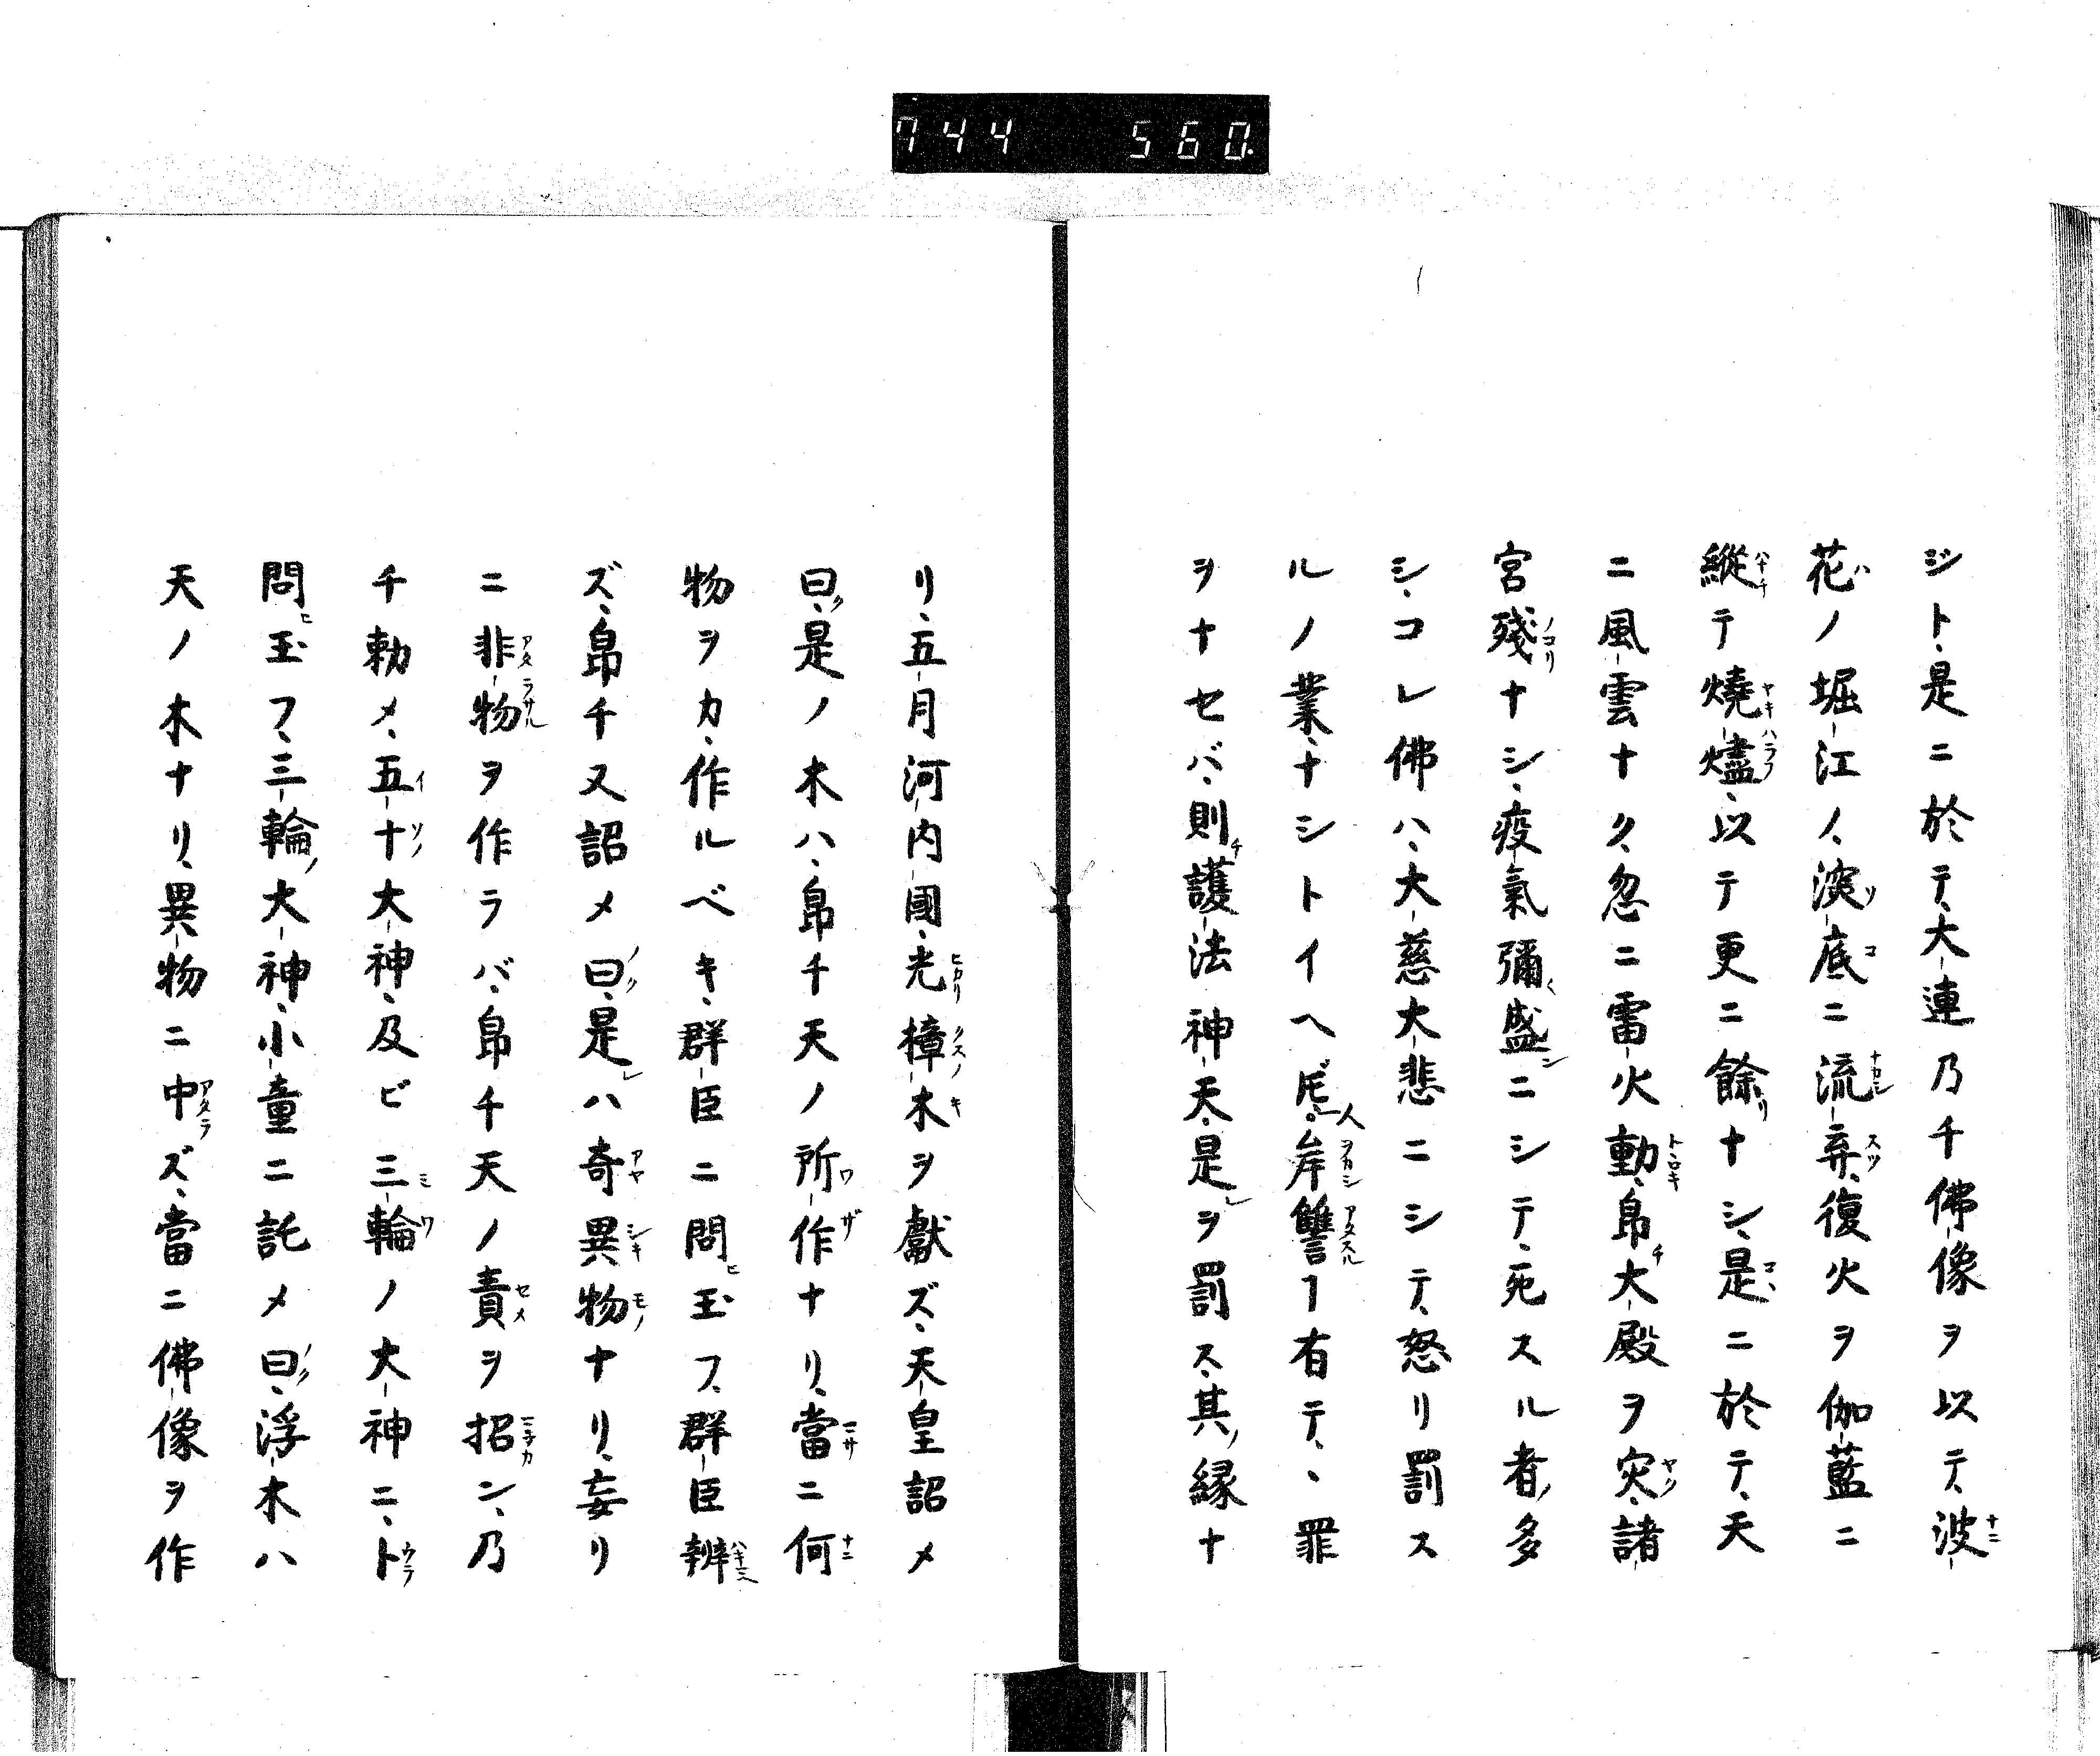 744 560.
ジト、是ニ於テ、大連乃チ佛像ヲ以テ、波
花ノ堀江ノ、深底ニ流弃、復火ヲ伽藍ニ
縱テ燒燼、以テ更ニ餘ナシ、是ニ於テ、天
ニ風雲ナク、忽ニ雷火動、帛大殿ヲ灾、諸
宮殘ナシ、疫氣彌盛ニシテ、死スル者、多
シ、コレ佛ハ、大慈大悲ニシテ、怒リ罰ス
ルノ業、ナシトイヘ𪜈、人岸讐ヿ有テ、罪
ヲナセバ、則護法神天、是ヲ罰ス、其縁ナ
リ、五月河内國、光樟木ヲ獻ズ、天皇詔メ
曰、是ノ木ハ、帛チ天ノ所作ナリ、當ニ何
物ヲカ、作ルベキ、群臣ニ問玉フ、群臣辨
ズ、帛チ又詔メ曰、是ハ奇異物ナリ、妄リ
ニ非物ヲ作ラバ、帛チ天ノ責ヲ招ン、乃
チ勅メ、五十大神、及ビ三輪ノ大神ニ、卜
問玉フ、三輪大神、小童ニ託メ曰、浮木ハ
天ノ木ナリ、異物ニ中ズ、當ニ佛像ヲ作